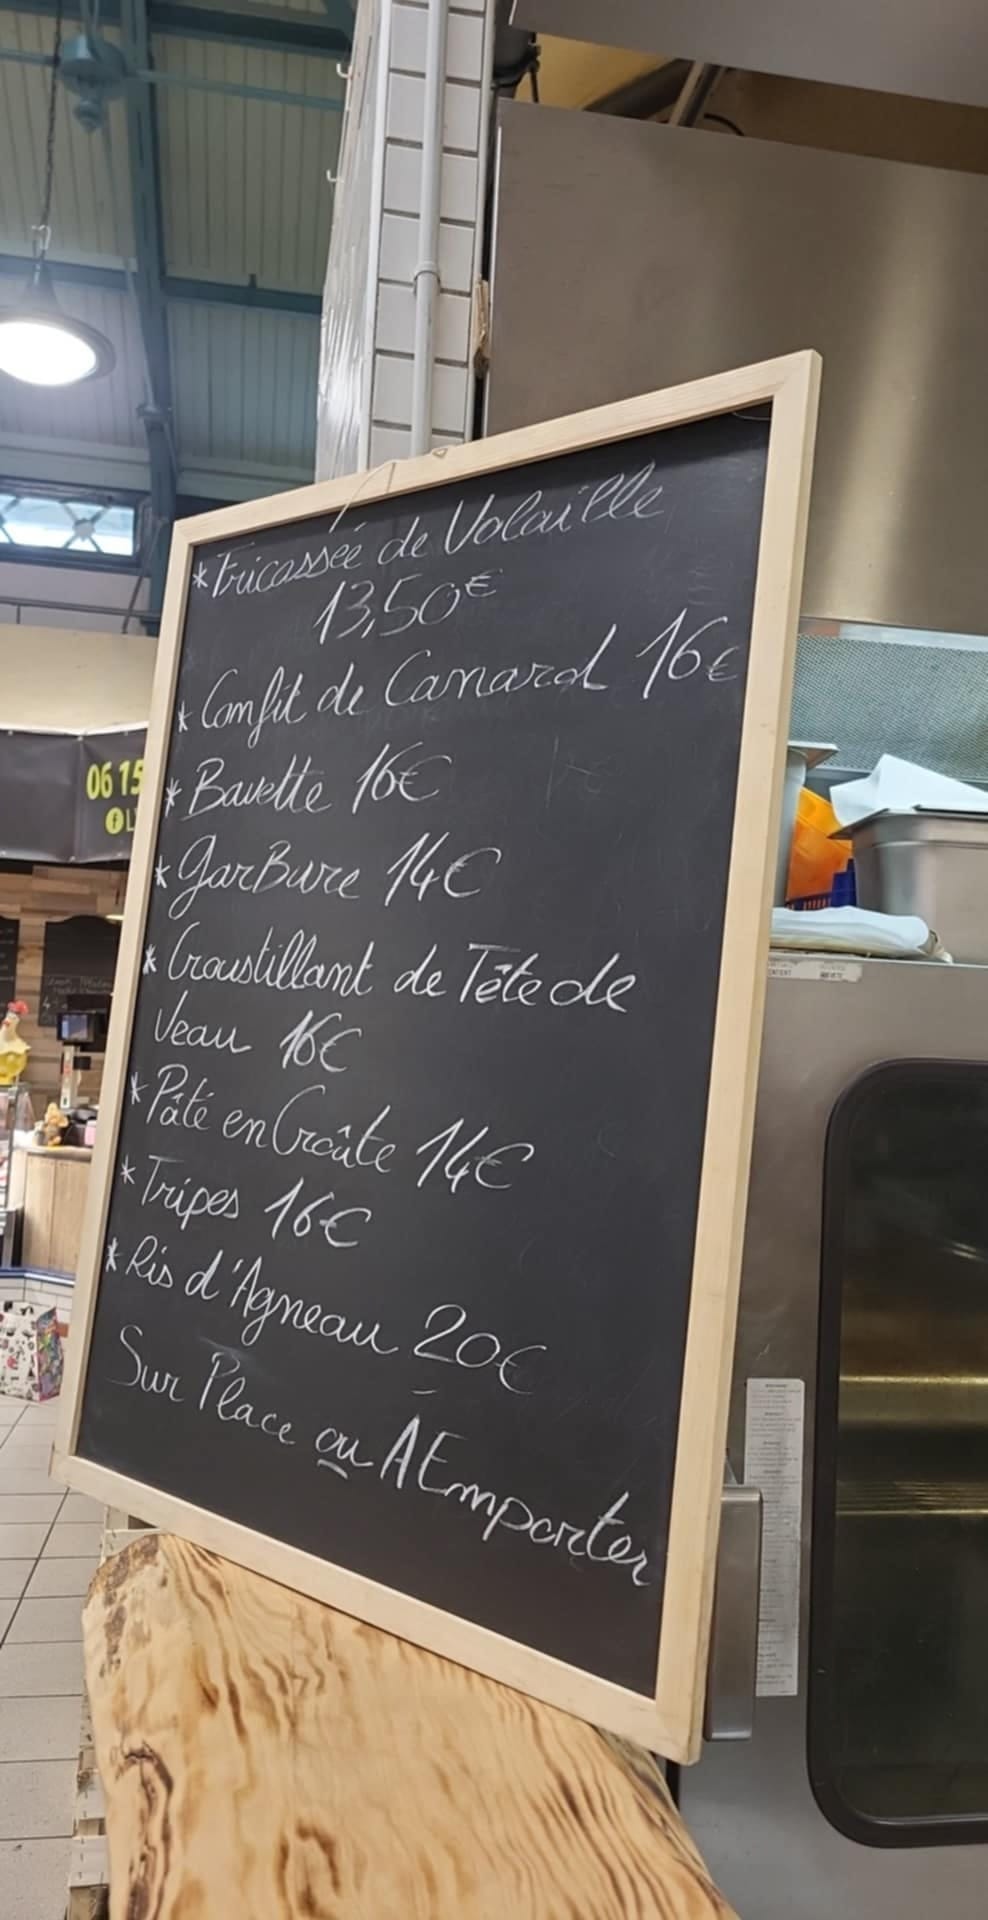 * Fricassée de Volaille
13,50€
* Confit de Canard 16€
* Bavette 16€
* GarBure 14€
* Croustillant de Tête de
Veau 16€
* Pâté en Croûte 14€
* Tripes 16€
* Ris d'Agneau 20€
Sur Place ou A Emporter
06 15